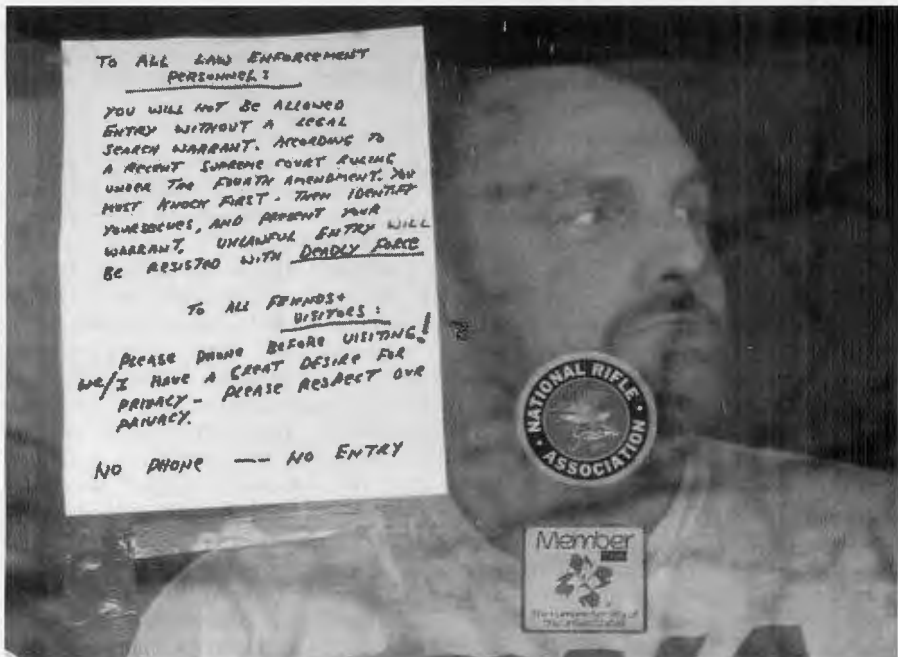 TO ALL LAW ENFORCEMENT
PERSONNEL:
YOU WILL NOT BE ALLOWED
ENTRY WITHOUT A LEGAL
SEARCH WARRANT. ACCORDING TO
A RECENT SUPREME COURT RULING
UNDER THE FOURTH AMENDMENT. YOU
MUST KNOCK FIRST - THEN IDENTIFY
YOURSELVES, AND PRESENT YOUR
WARRANT. UNLAWFUL ENTRY WILL
BE RESISTED WITH DEADLY FORCE
TO ALL FRIENDS +
VISITORS:
PLEASE PHONE BEFORE VISITING!
WE/I HAVE A GREAT DESIRE FOR
PRIVACY - PLEASE RESPECT OUR
PRIVACY.
NO PHONE — NO ENTRY
NATIONAL RIFLE
ASSOCIATION
Member
The Humane Society of
the United States